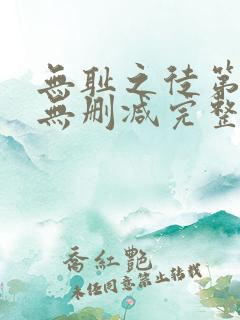 無耻之徒第
無删减完整
喬紅艷
未经同意禁止转载